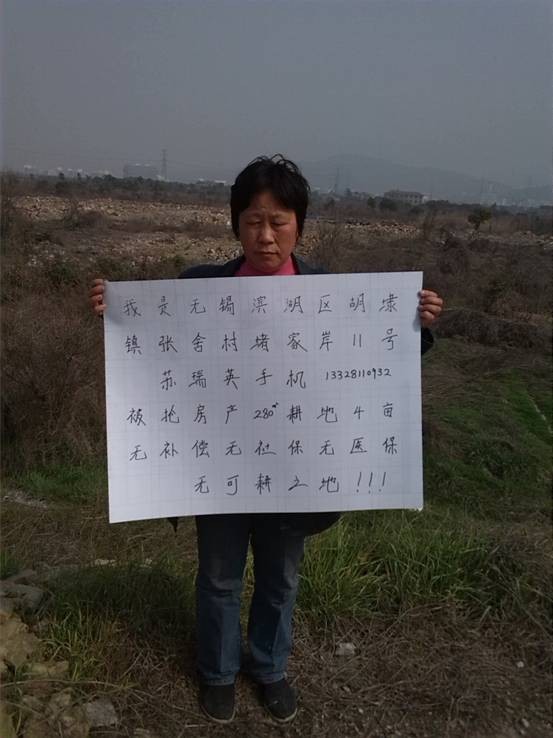 我是无锡滨湖区胡埭
镇张舍村堵家岸11号
苏瑞英手机 13328110932
被抢房产280㎡耕地4亩
无补偿无社保无医保
无可耕之地!!!